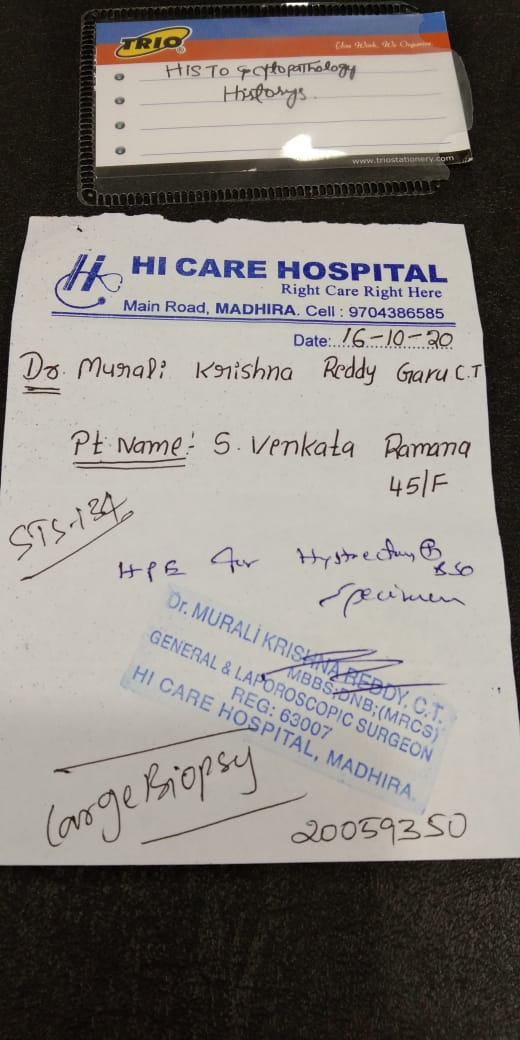 TRIO®
You Work, We Organise
HISTO & cytopathology
Historys.
www.triostationery.com
Hi HI CARE HOSPITAL
Right Care Right Here
Main Road, MADHIRA. Cell : 9704386585
Date:..16-10-20
Dr. Murali Krishna Reddy Garu C.T
Pt Name:- S. Venkata Ramana
45/F
STS-134
HPE for Hystrectomy ⊕
BSO
Specimen
Dr. MURALI KRISHNA REDDY. C.T.
MBBS;DNB;(MRCS)
GENERAL & LAPOROSCOPIC SURGEON
REG: 63007
HI CARE HOSPITAL, MADHIRA.
Large Biopsy
20059350